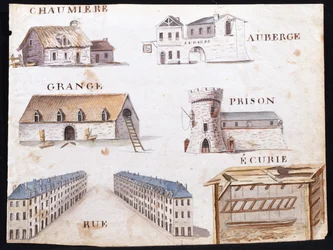 CHAUMIÈRE
AUBERGE
GRANGE
PRISON
ÉCURIE
RUE